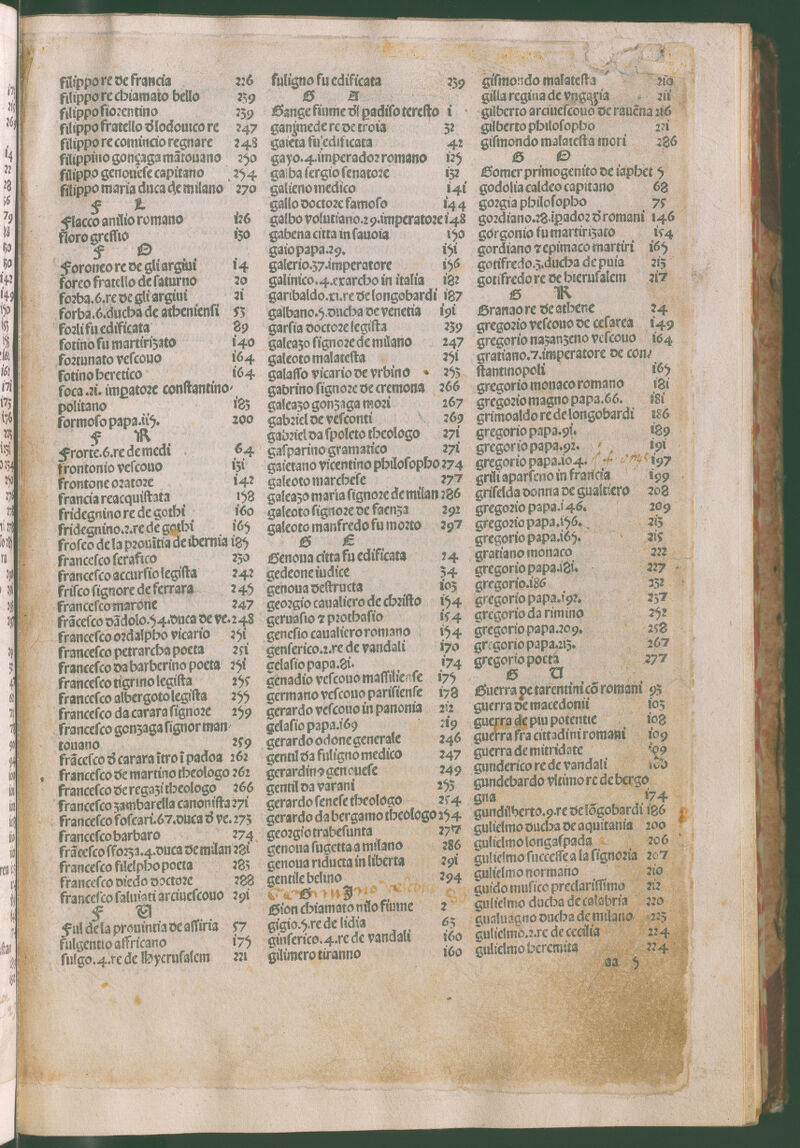 filippo re de francia 226
filippo re chiamato bello 239
filippo fiorentino 239
filippo fratello d̄ lodouico re 247
filippo re comincio regnare 248
filippino gonçaga mātouano 250
filippo genouese capitano 254
filippo maria duca de milano 270
F L
Flacco anilio romano 126
floro gressio 130
F O
Foroneo re de gli argiui 14
forco fratello de saturno 20
forba.6.re de gli argiui 21
forba.6.ducha de atheniensi 53
forli fu edificata 89
fotino fu martirizato 140
fortunato vescouo 164
fotino heretico 164
foca.21.impatore constantino-
politano 183
formoso papa.115. 200
F R
Frorte.6.re de medi 64
frontonio vescouo 131
frontone oratore 142
francia reacquistata 158
fridegnino re de gothi 160
fridegnino.2.re de gothi 165
frosco de la prouītia de ibernia 185
francesco serafico 230
francesco accursio legista 242
frisco signore de ferrara 245
francesco marone 247
frācesco dādolo.54.duca de ve.248
francesco ordalpho vicario 251
francesco petrarcha poeta 251
francesco da barberino poeta 251
francesco tigrino legista 255
francesco albergoto legista 255
francesco da carara signore 259
francesco gonzaga signor man-
touano 259
frācesco d̄ carara ītro ī padoa 262
francesco de martino theologo 262
francesco de regazi theologo 266
francesco zambarella canonista 271
francesco foscari.67.duca d̄ ve.273
francesco barbaro 274
frācesco sforza.4.duca de milan 281
francesco filelpho poeta 283
francesco diedo doctore 288
francesco saluiati arciuescouo 291
F U
Ful de la prouintia de assiria 57
fulgentio affricano 175
fulgo.4.re de Ihyerusalem 221
fuligno fu edificata 239
G A
Gange fiume dl padiso teresto 1
ganimede re de troia 32
gaieta fu edificata 42
gayo.4.imperador romano 125
galba sergio senatore 132
galieno medico 141
gallo doctor famoso 144
galbo volutiano.29.imperatore 148
gabena citta in sauoia 150
gaio papa.29. 151
galerio.37.imperatore 156
galinico.4.exarcho in italia 182
garibaldo.xi.re de longobardi 187
galbano.5.ducha de venetia 191
garsia doctore legista 239
galeazo signore de milano 247
galeoto malatesta 251
galasso vicario de vrbino 253
gabrino signore de cremona 266
galeazo gonzaga mori 267
gabriel de vesconti 269
gabriel da spoleto theologo 271
gasparino gramatico 271
gaietano vicentino philosopho 274
galeoto marchese 277
galeazo maria signore de milan 286
galeoto signore de faenza 292
galeoto manfredo fu morto 297
G E
Genoua citta fu edificata 24
gedeone iudice 34
genoua destructa 103
georgio caualiero de christo 154
geruasio ⁊ prothasio 154
genesio caualiero romano 154
genserico.2.re de vandali 170
gelasio papa.81. 174
genadio vescouo massiliense 175
germano vescouo parisiense 178
gerardo vescouo in panonia 212
gelasio papa.169 219
gerardo odone generale 246
gentil da fuligno medico 247
gerardino genouese 249
gentil da varani 253
gerardo senese theologo 254
gerardo da bergamo theologo 254
georgio trabesunta 277
genoua sugetta a milano 286
genoua riducta in liberta 291
gentile belino 294
G I
Gion chiamato nilo fiume 2
gigio.5.re de lidia 63
ginserico.4.re de vandali 160
gilimero tiranno 160
gismondo malatesta 210
gilla regina de vngaria 211
gilberto arciuescouo de rauēna 216
gilberto philosopho 221
gismondo malatesta mori 286
G O
Gomer primogenito de iaphet 5
godolia caldeo capitano 68
gorgia philosopho 75
gordiano.28.īpador d̄ romani 146
gorgonio fu martirizato 154
gordiano ⁊ epimaco martiri 165
gotifredo.3.ducha de puia 213
gotifredo re de hierusalem 217
G R
Granao re de athene 24
gregorio vescouo de cesarea 149
gregorio nazanzeno vescouo 164
gratiano.7.imperatore de con-
stantinopoli 165
gregorio monaco romano 181
gregorio magno papa.66. 181
grimoaldo re de longobardi 186
gregorio papa.91. 189
gregorio papa.92. 191
gregorio papa.104. 197
grili aparseno in francia 199
griselda donna de gualtiero 208
gregorio papa.146. 209
gregorio papa.156. 213
gregorio papa.165. 215
gratiano monaco 222
gregorio papa.181. 227
gregorio.186 232
gregorio papa.192. 237
gregorio da rimino 252
gregorio papa.209. 258
gregorio papa.213. 267
gregorio poeta 277
G U
Guerra de tarentini cō romani 93
guerra de macedonii 103
guerra de piu potentie 108
guerra fra cittadini romani 109
guerra de mitridate 109
gunderico re de vandali 160
gundebardo vltimo re de bergo
gna 174
gundilberto.9.re de lōgobardi 186
gulielmo ducha de aquitania 200
gulielmo longaspada 206
gulielmo successe a la signoria 207
gulielmo normano 210
guido musico preclarissimo 212
gulielmo ducha de calabria 220
gualuagno ducha de milano 223
gulielmo.2.re de cecilia 224
gulielmo heremita 224
aa 5